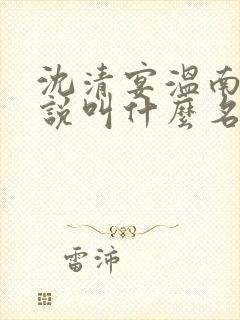 沈清宴溫南
說叫什麼名
雷沛